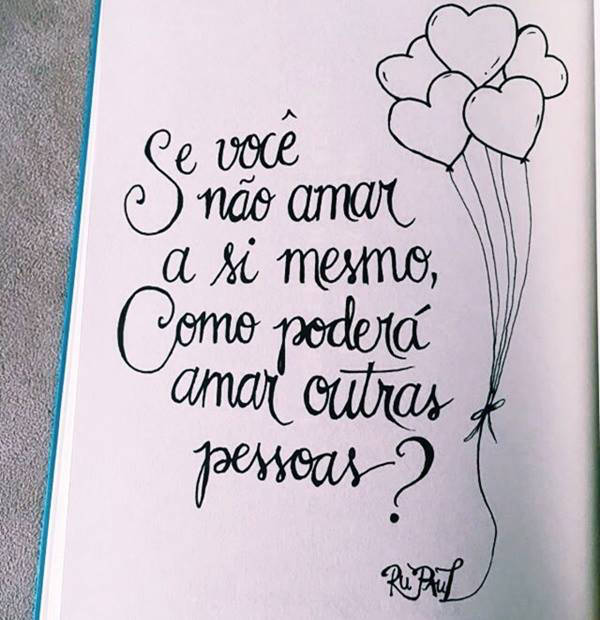 Se você
não amar
a si mesmo,
Como poderá
amar outras
pessoas?
RuPaul